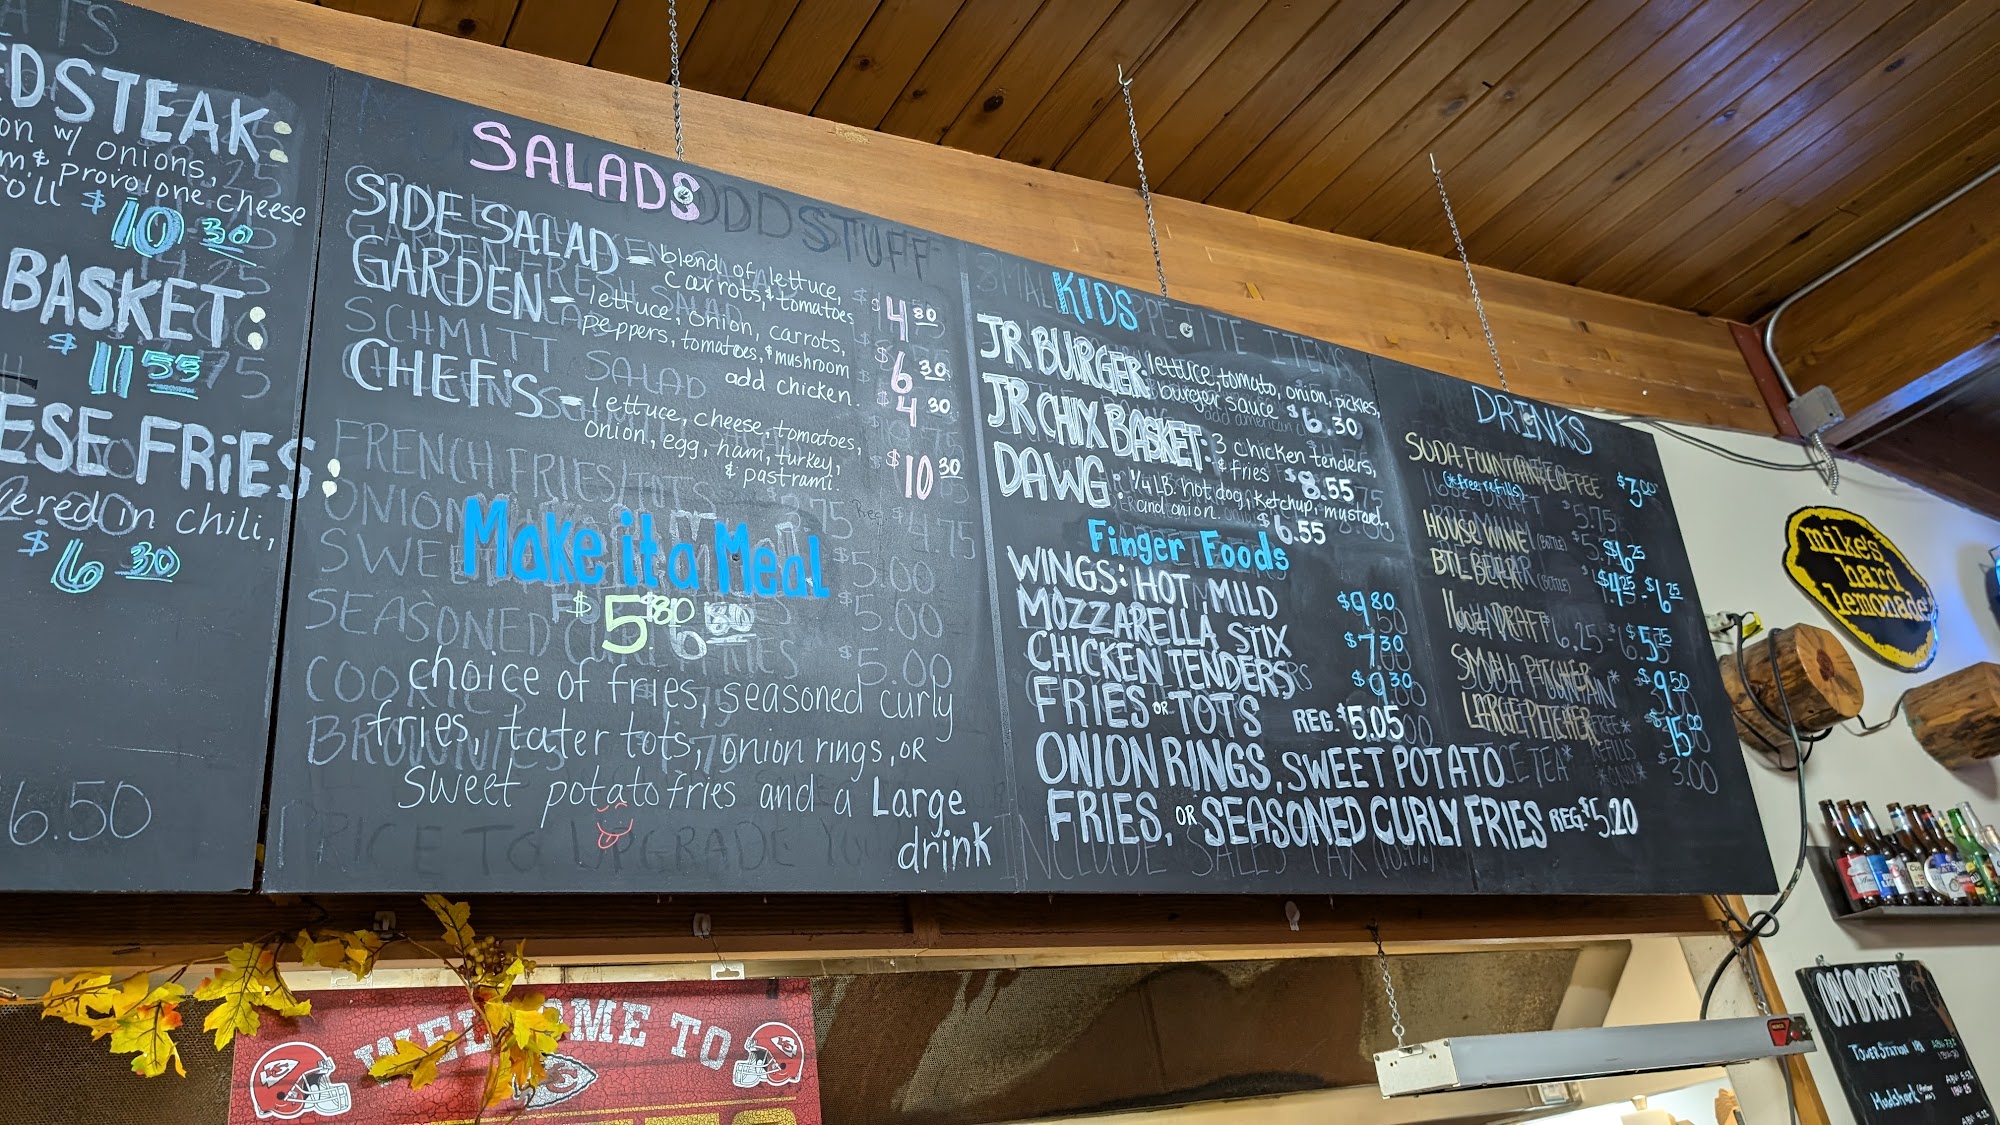 EDSTEAK:
on w/ onions,
m. & Provolone cheese
roll $10 30
BASKET:
$11 55
ESE FRiES:
ered in chili,
$6 30
6.50
SALADS
ODD STUFF
SIDE SALAD - blend of lettuce,
carrots, & tomatoes $4 80
GARDEN - lettuce, onion, carrots,
peppers, tomatoes, & mushroom $6 30
add chicken. $4 30
SCHMITT SALAD
CHEF'S - lettuce, cheese, tomatoes,
onion, egg, ham, turkey,
& pastrami. $10 30
FRENCH FRIES/TOTS
ONION
$4.75
SWEE
$5.00
Make it a Meal
$5 80
SEASONED CURLY FRIES $5.00
COOKIES
$5.00
BROWNIES
choice of fries, seasoned curly
fries, tater tots, onion rings, OR
Sweet potato fries and a Large
drink
PRICE TO UPGRADE YOU
INCLUDE SALES TAX
KIDS
SMALL APPETITE ITEMS
JR BURGER: lettuce, tomato, onion, pickles,
burger sauce $6.30
JR CHIX BASKET: 3 chicken tenders,
& fries $8.55
DAWG: 1/4 LB. hot dog, ketchup, mustard,
and onion. $6.55
Finger Foods
WINGS: HOT, MILD $9 80
MOZZARELLA STIX $7 30
CHICKEN TENDERS $9 30
FRIES OR TOTS REG. $5.05
ONION RINGS, SWEET POTATO
FRIES, OR SEASONED CURLY FRIES REG. $5.20
DRINKS
SODA FOUNTAIN/COFFEE $3 00
(*free refills)
HOUSE WINE (BOTTLE) $6 25
BTL BEER (BOTTLE) $4 25 - $6 25
16oz DRAFT $5 75
SMALL PITCHER $9 50
LARGE PITCHER $15 00
ICE TEA*
REFILLS
*ONLY*
$3.00
mike's
hard
lemonade
WELCOME TO
KC
ON DRAFT
TOWER STATION IPA
Mudshark